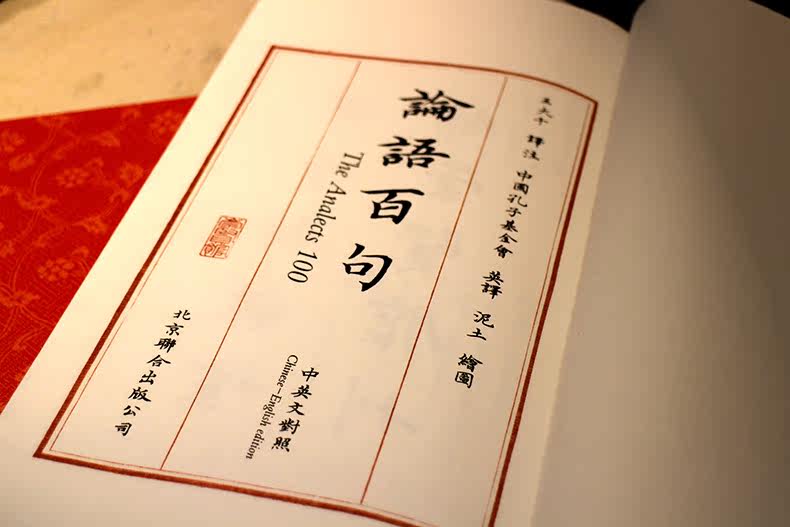 王大千 譯注 中國孔子基金會 英譯 泥土 繪圖
論語百句
The Analects 100
中英文對照
Chinese–English edition
北京聯合出版公司